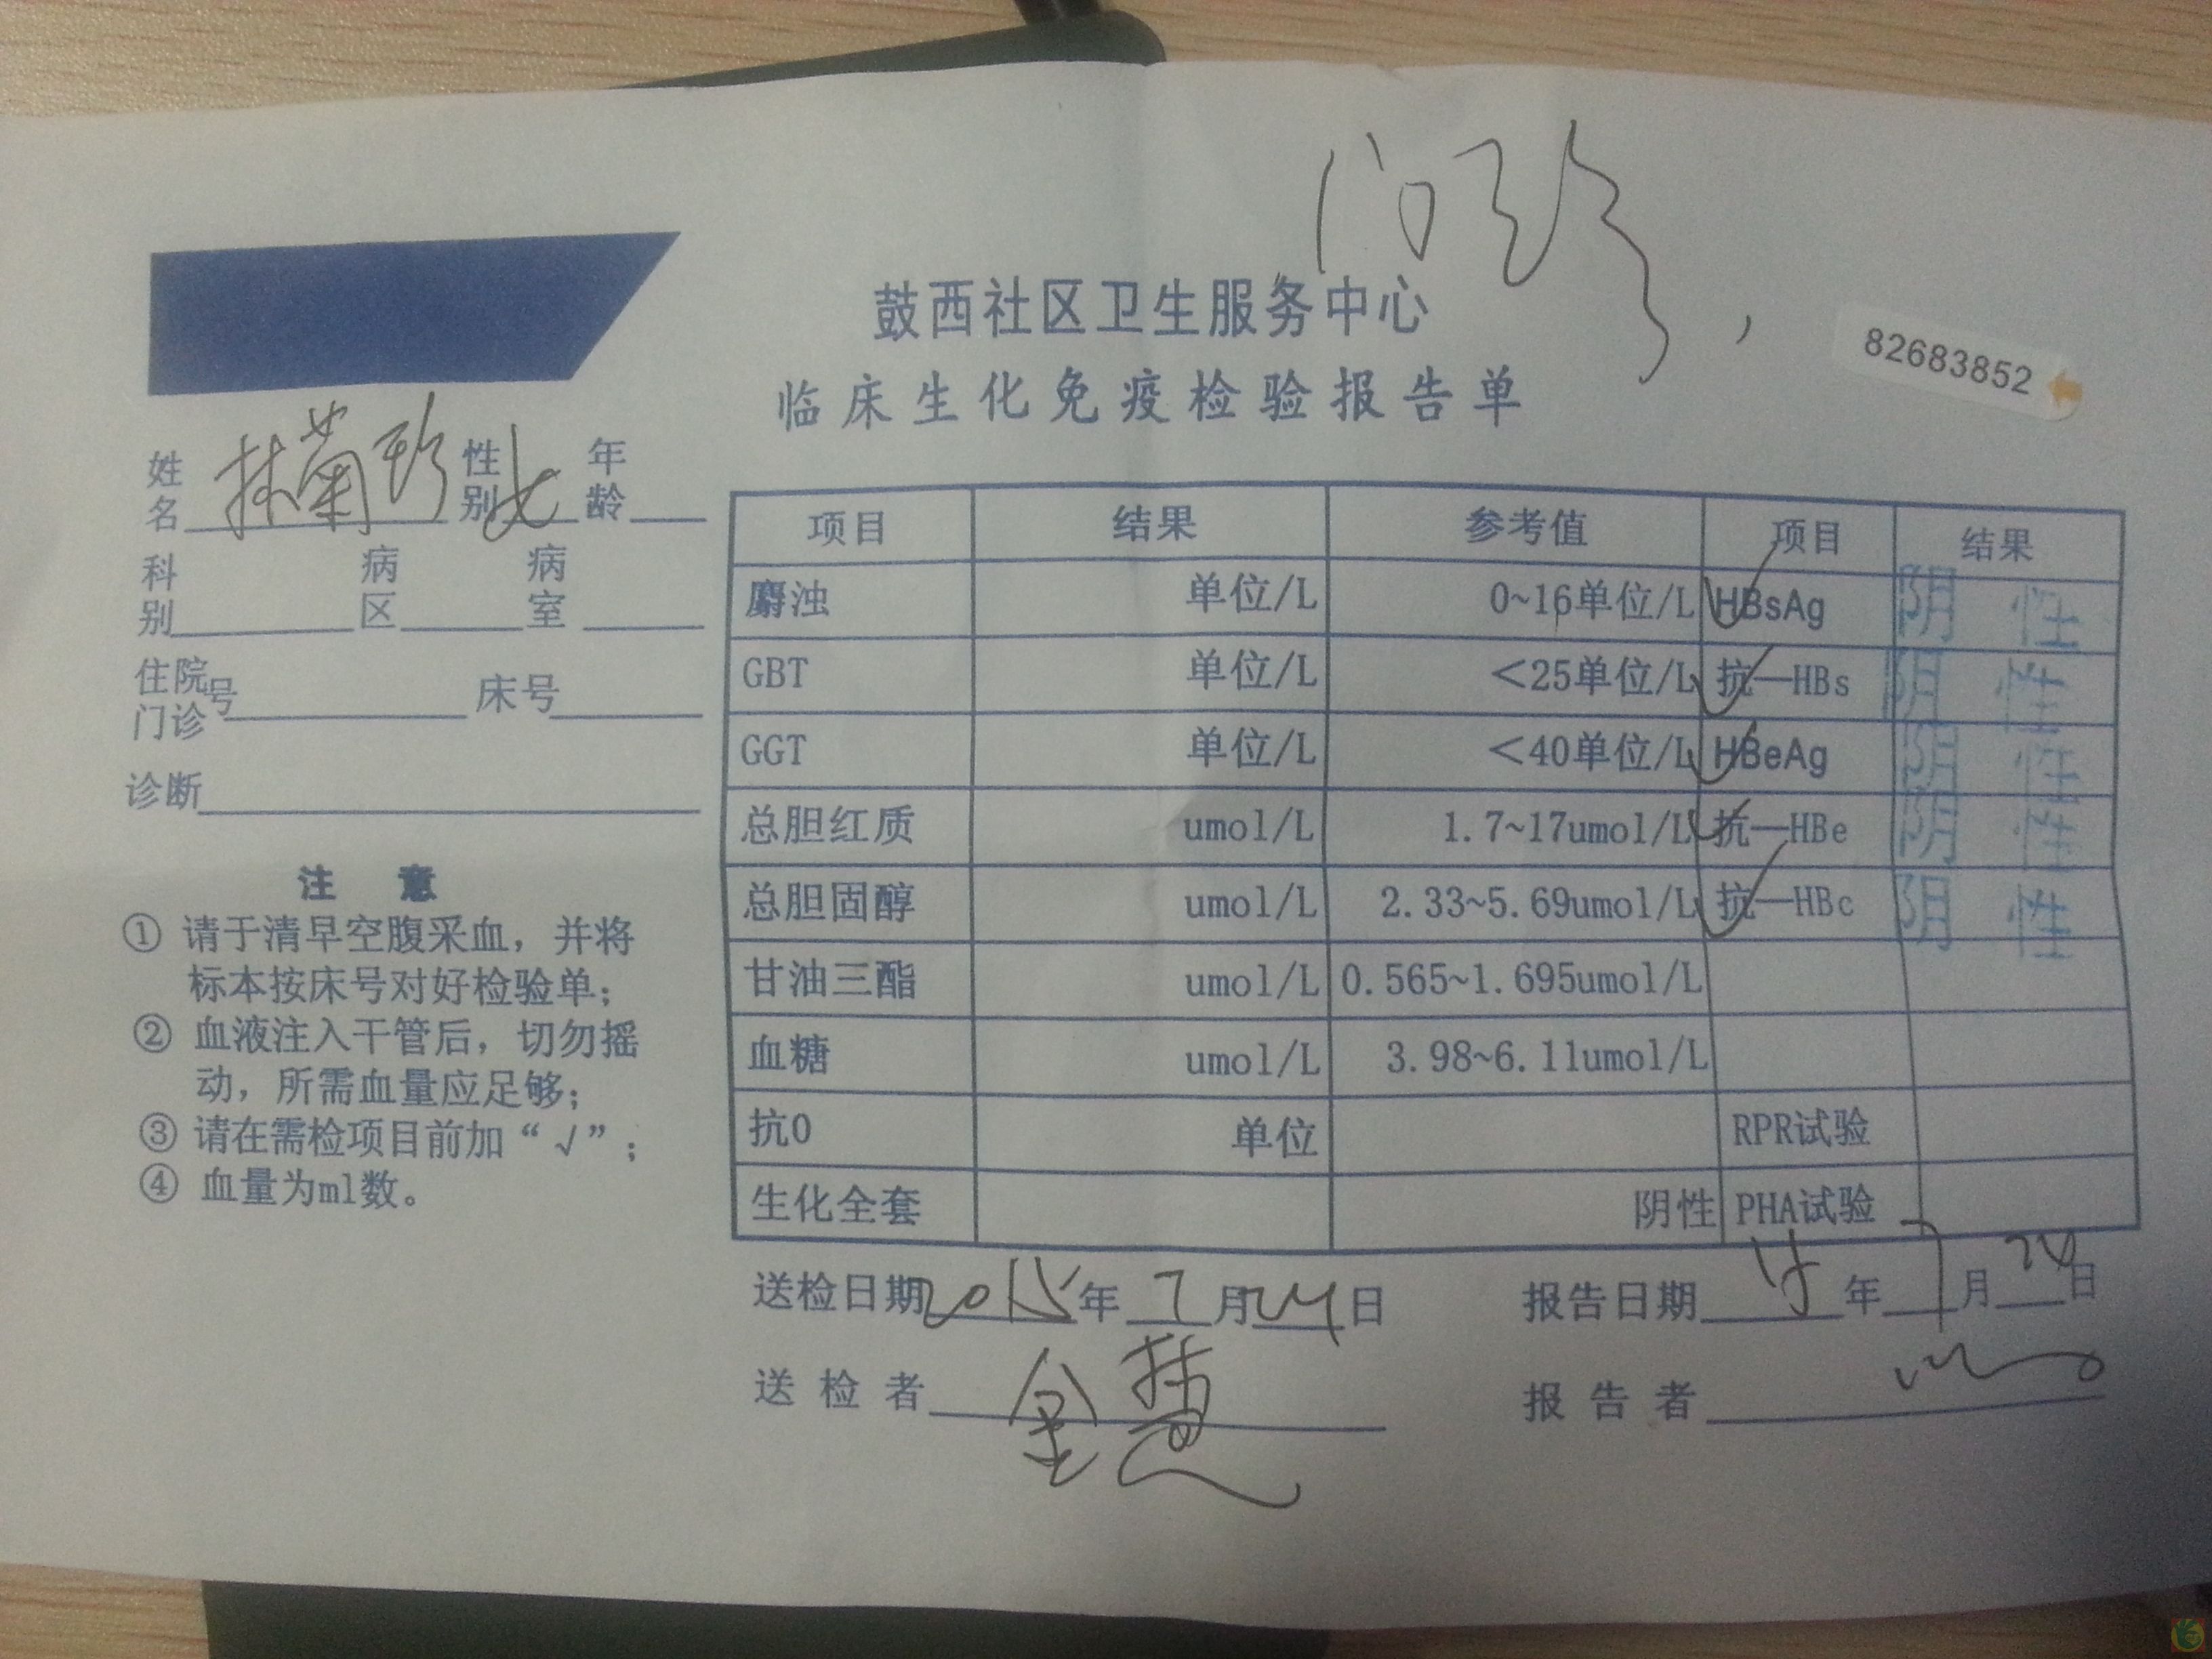 门诊
鼓西社区卫生服务中心
临床生化免疫检验报告单
82683852
姓名 林菊珍 性别 女 年龄
科别 病区 病室
住院门诊号 床号
诊断
注 意
① 请于清早空腹采血，并将
标本按床号对好检验单；
② 血液注入干管后，切勿摇
动，所需血量应足够；
③ 请在需检项目前加“√”；
④ 血量为ml数。
项目 结果 参考值 项目 结果
麝浊 单位/L 0~16单位/L √ HBsAg 阴性
GBT 单位/L <25单位/L √ 抗—HBs 阴性
GGT 单位/L <40单位/L √ HBeAg 阴性
总胆红质 umol/L 1.7~17umol/L √ 抗—HBe 阴性
总胆固醇 umol/L 2.33~5.69umol/L √ 抗—HBc 阴性
甘油三酯 umol/L 0.565~1.695umol/L
血糖 umol/L 3.98~6.11umol/L
抗0 单位 RPR试验
生化全套 阴性 PHA试验
送检日期 2015年7月24日 报告日期 15年7月24日
送检者 报告者